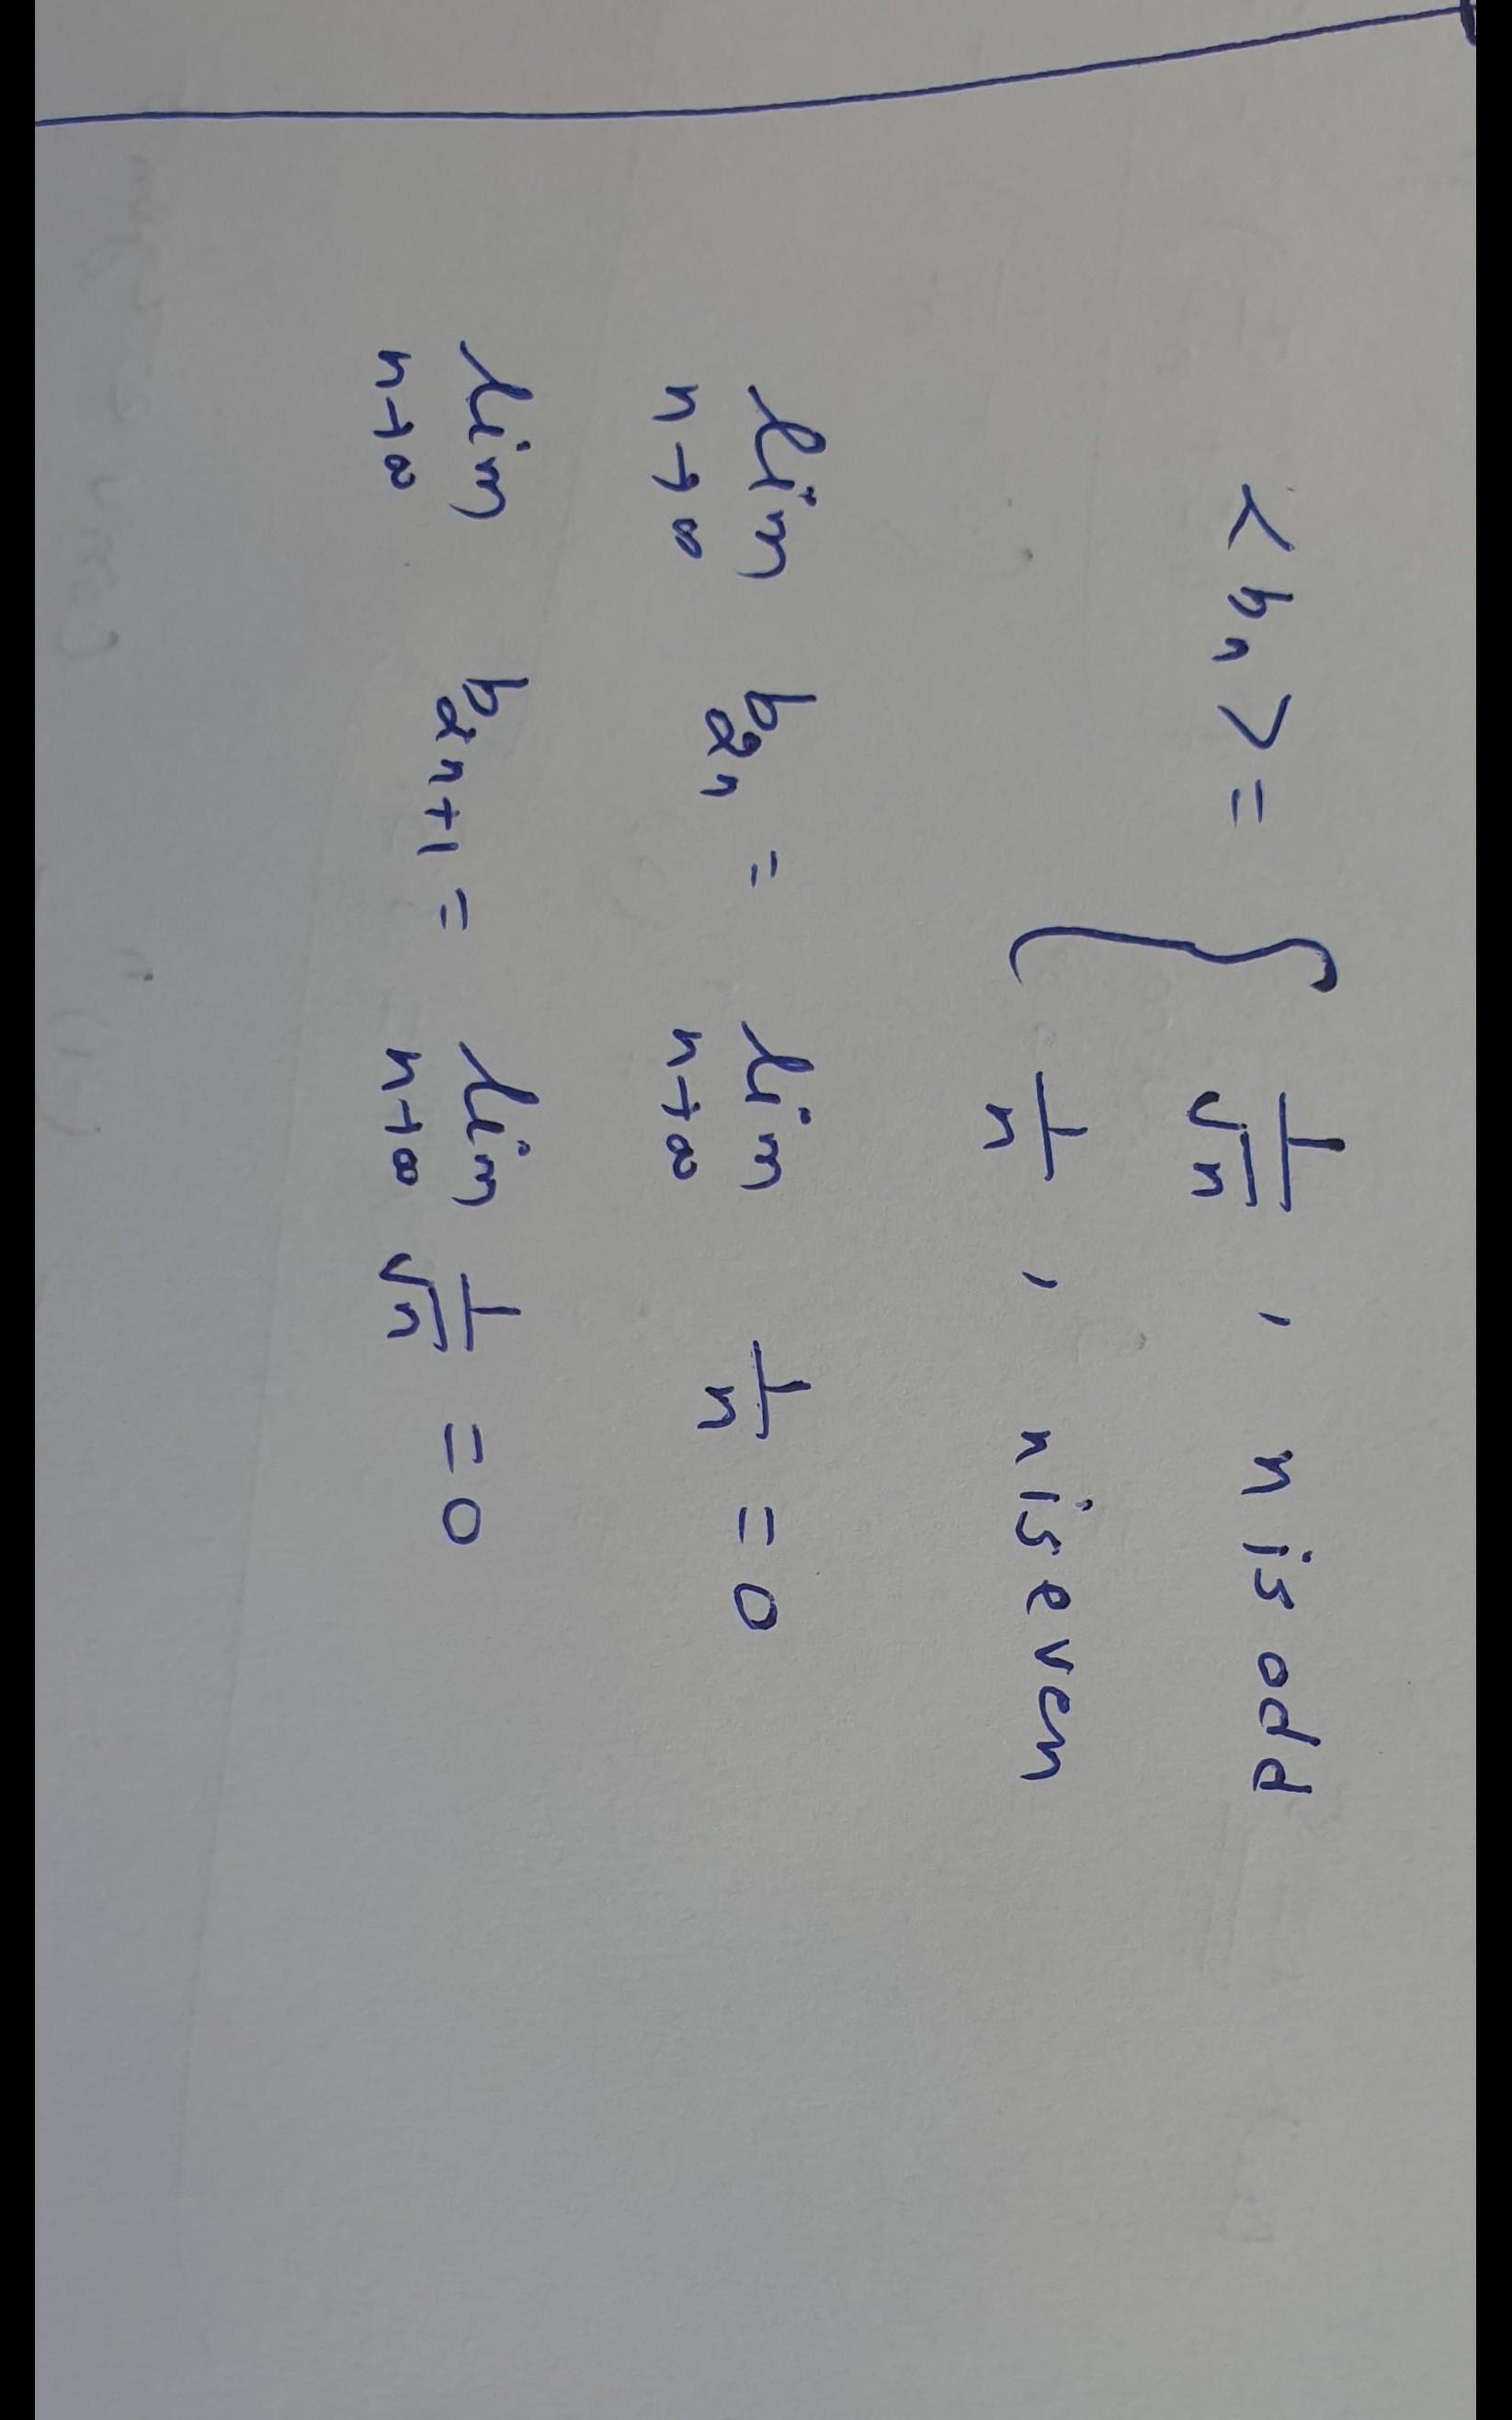 < bₙ > = { 1/√n , n is odd
1/n , n is even
lim n→∞ b₂ₙ = lim n→∞ 1/n = 0
lim n→∞ b₂ₙ₊₁ = lim n→∞ 1/√n = 0